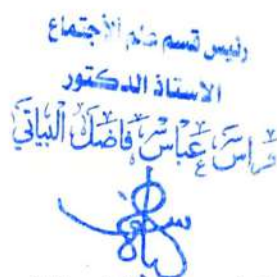 رئيس قسم علم الأجتماع
الاستاذ الدكتور
فراس عباس فاضل البياتي